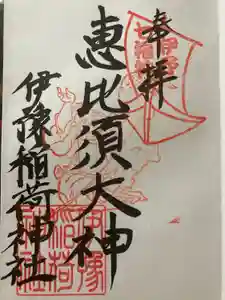 奉拝
恵比須大神
伊豫稲荷神社
伊豫稲荷神社